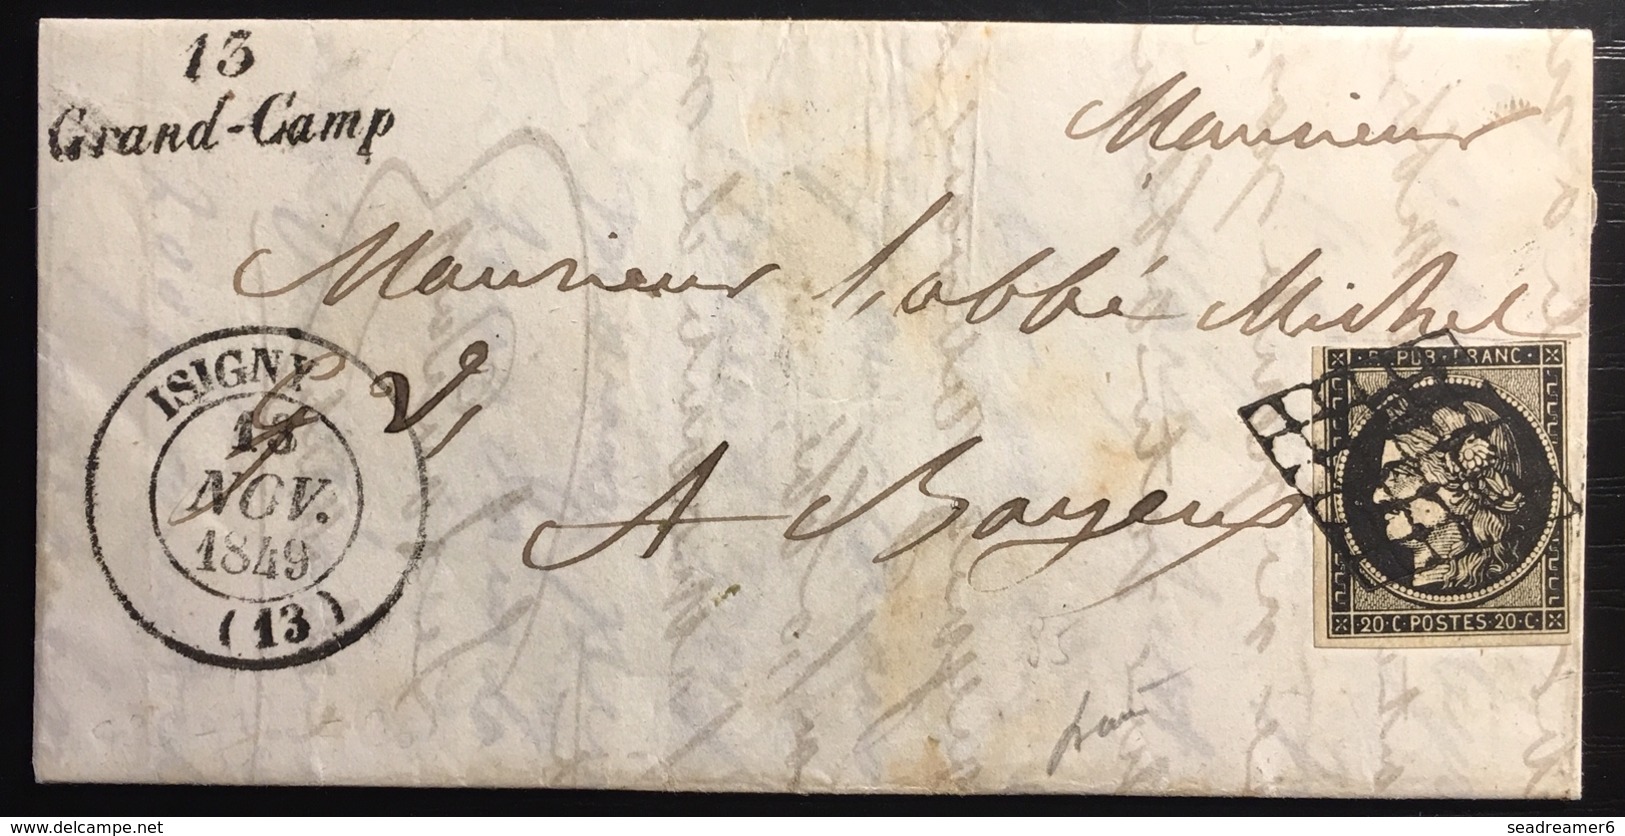 13
Grand-Camp
Monsieur
Monsieur l'abbé Michel
A Bayeux
ISIGNY
13
NOV.
1849
(13)
REPUB. FRANC.
20·C·POSTES·20·C·
85
www.delcampe.net
seadreamer6